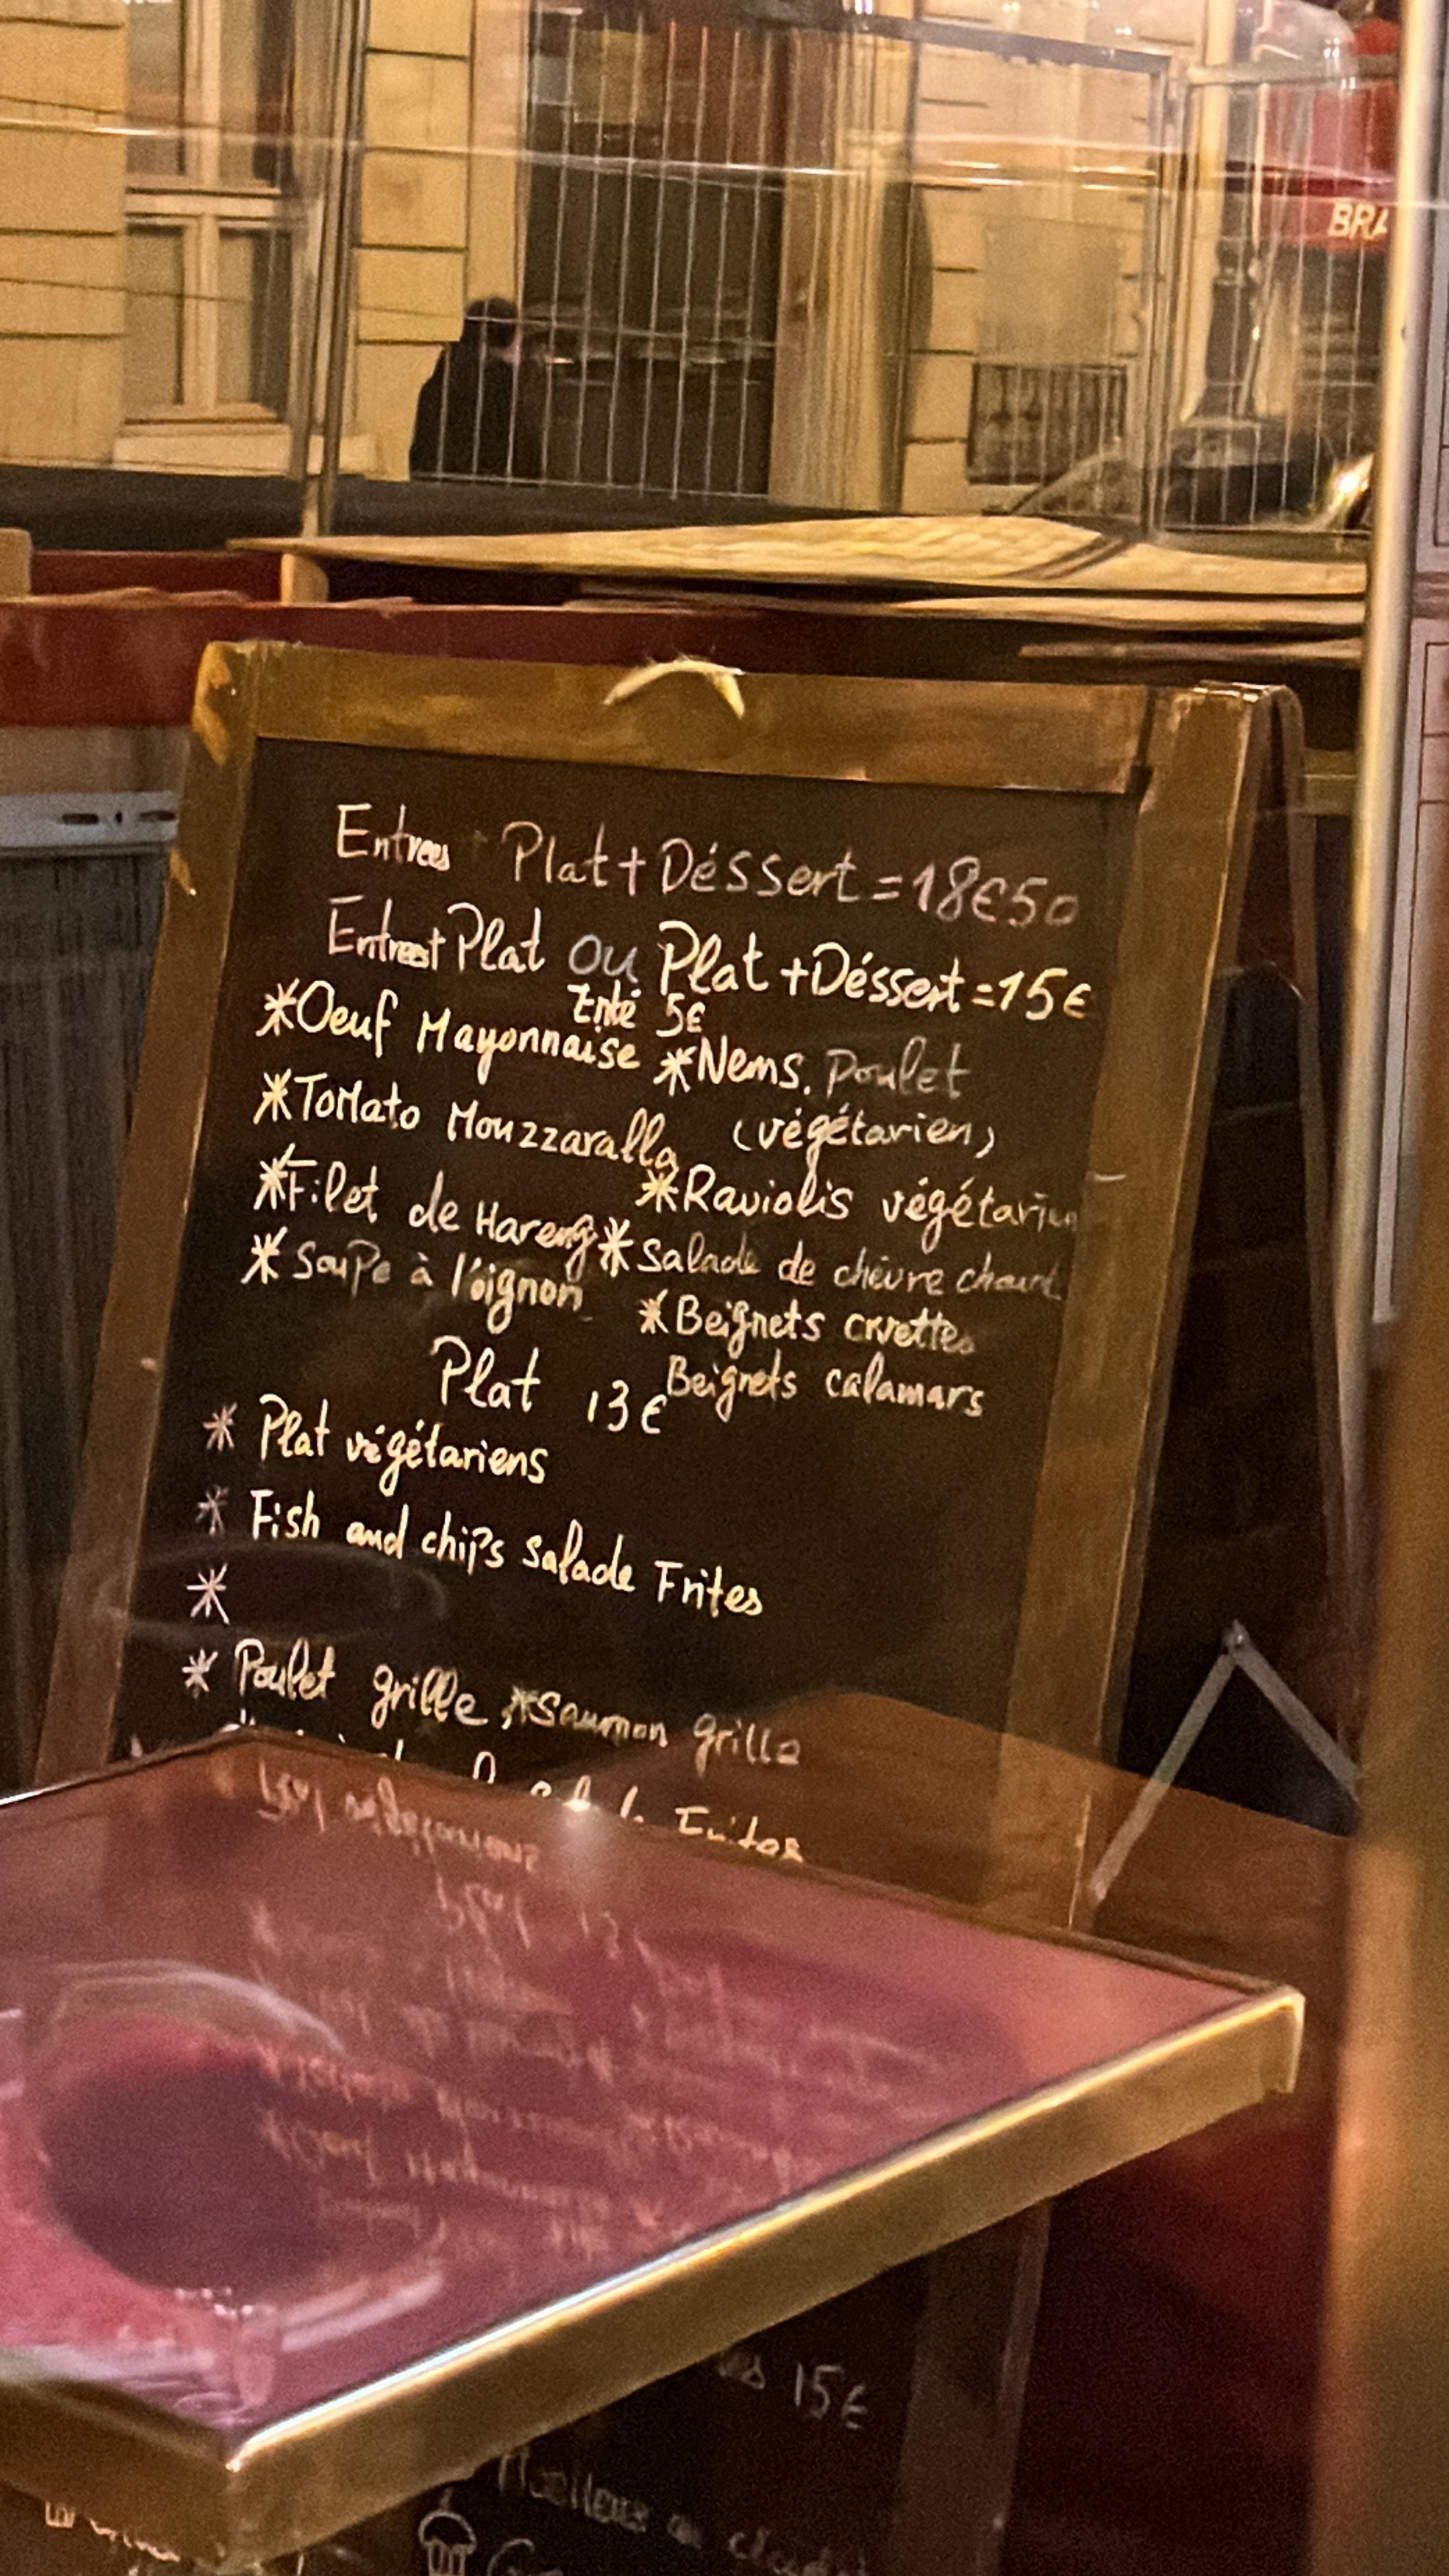 BRA
Entrees Plat + Déssert = 18€50
Entrees+Plat ou Plat + Déssert = 15€
Entré 5€
*Oeuf Mayonnaise *Nems. Poulet
*Tomato Mouzzaralla (végétarien)
*Filet de Hareng *Raviolis végétarien
*Soupe à l'oignon *Salade de chèvre chaud
*Beignets crvettes
Plat 13€ Beignets calamars
* Plat végétariens
* Fish and chips salade Frites
*
* Poulet grille *Saumon grille
Frites
15€
Moelleux au chocolat